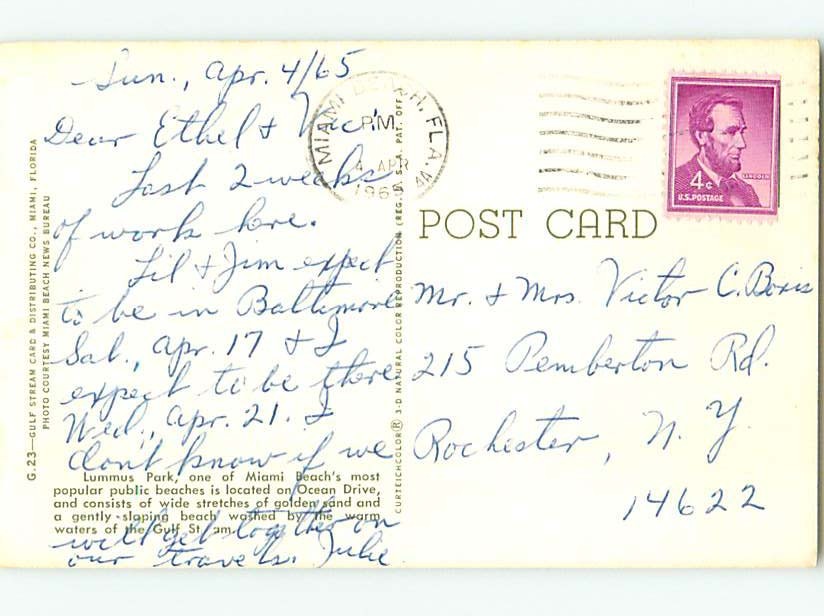 Sun., Apr. 4/65
Dear Ethel & Vic:
Last 2 weeks
of work here.
Lil & Jim expect
to be in Baltimore
Sat., Apr. 17 & I
expect to be there
Wed., Apr. 21. I
don't know if we
will get together on
our travels. Julie
Lummus Park, one of Miami Beach's most
popular public beaches is located on Ocean Drive,
and consists of wide stretches of golden sand and
a gently sloping beach washed by the warm
waters of the Gulf Stream.
G.23—GULF STREAM CARD & DISTRIBUTING CO., MIAMI, FLORIDA
PHOTO COURTESY MIAMI BEACH NEWS BUREAU
CURTEICHCOLOR® 3-D NATURAL COLOR REPRODUCTION (REG. U. S. A. PAT. OFF.
MIAMI BEACH, FLA.
PM
4 APR
1965
LINCOLN
4¢
U.S. POSTAGE
POST CARD
Mr. & Mrs. Victor C. Boris
215 Pemberton Rd.
Rochester, N. Y.
14622